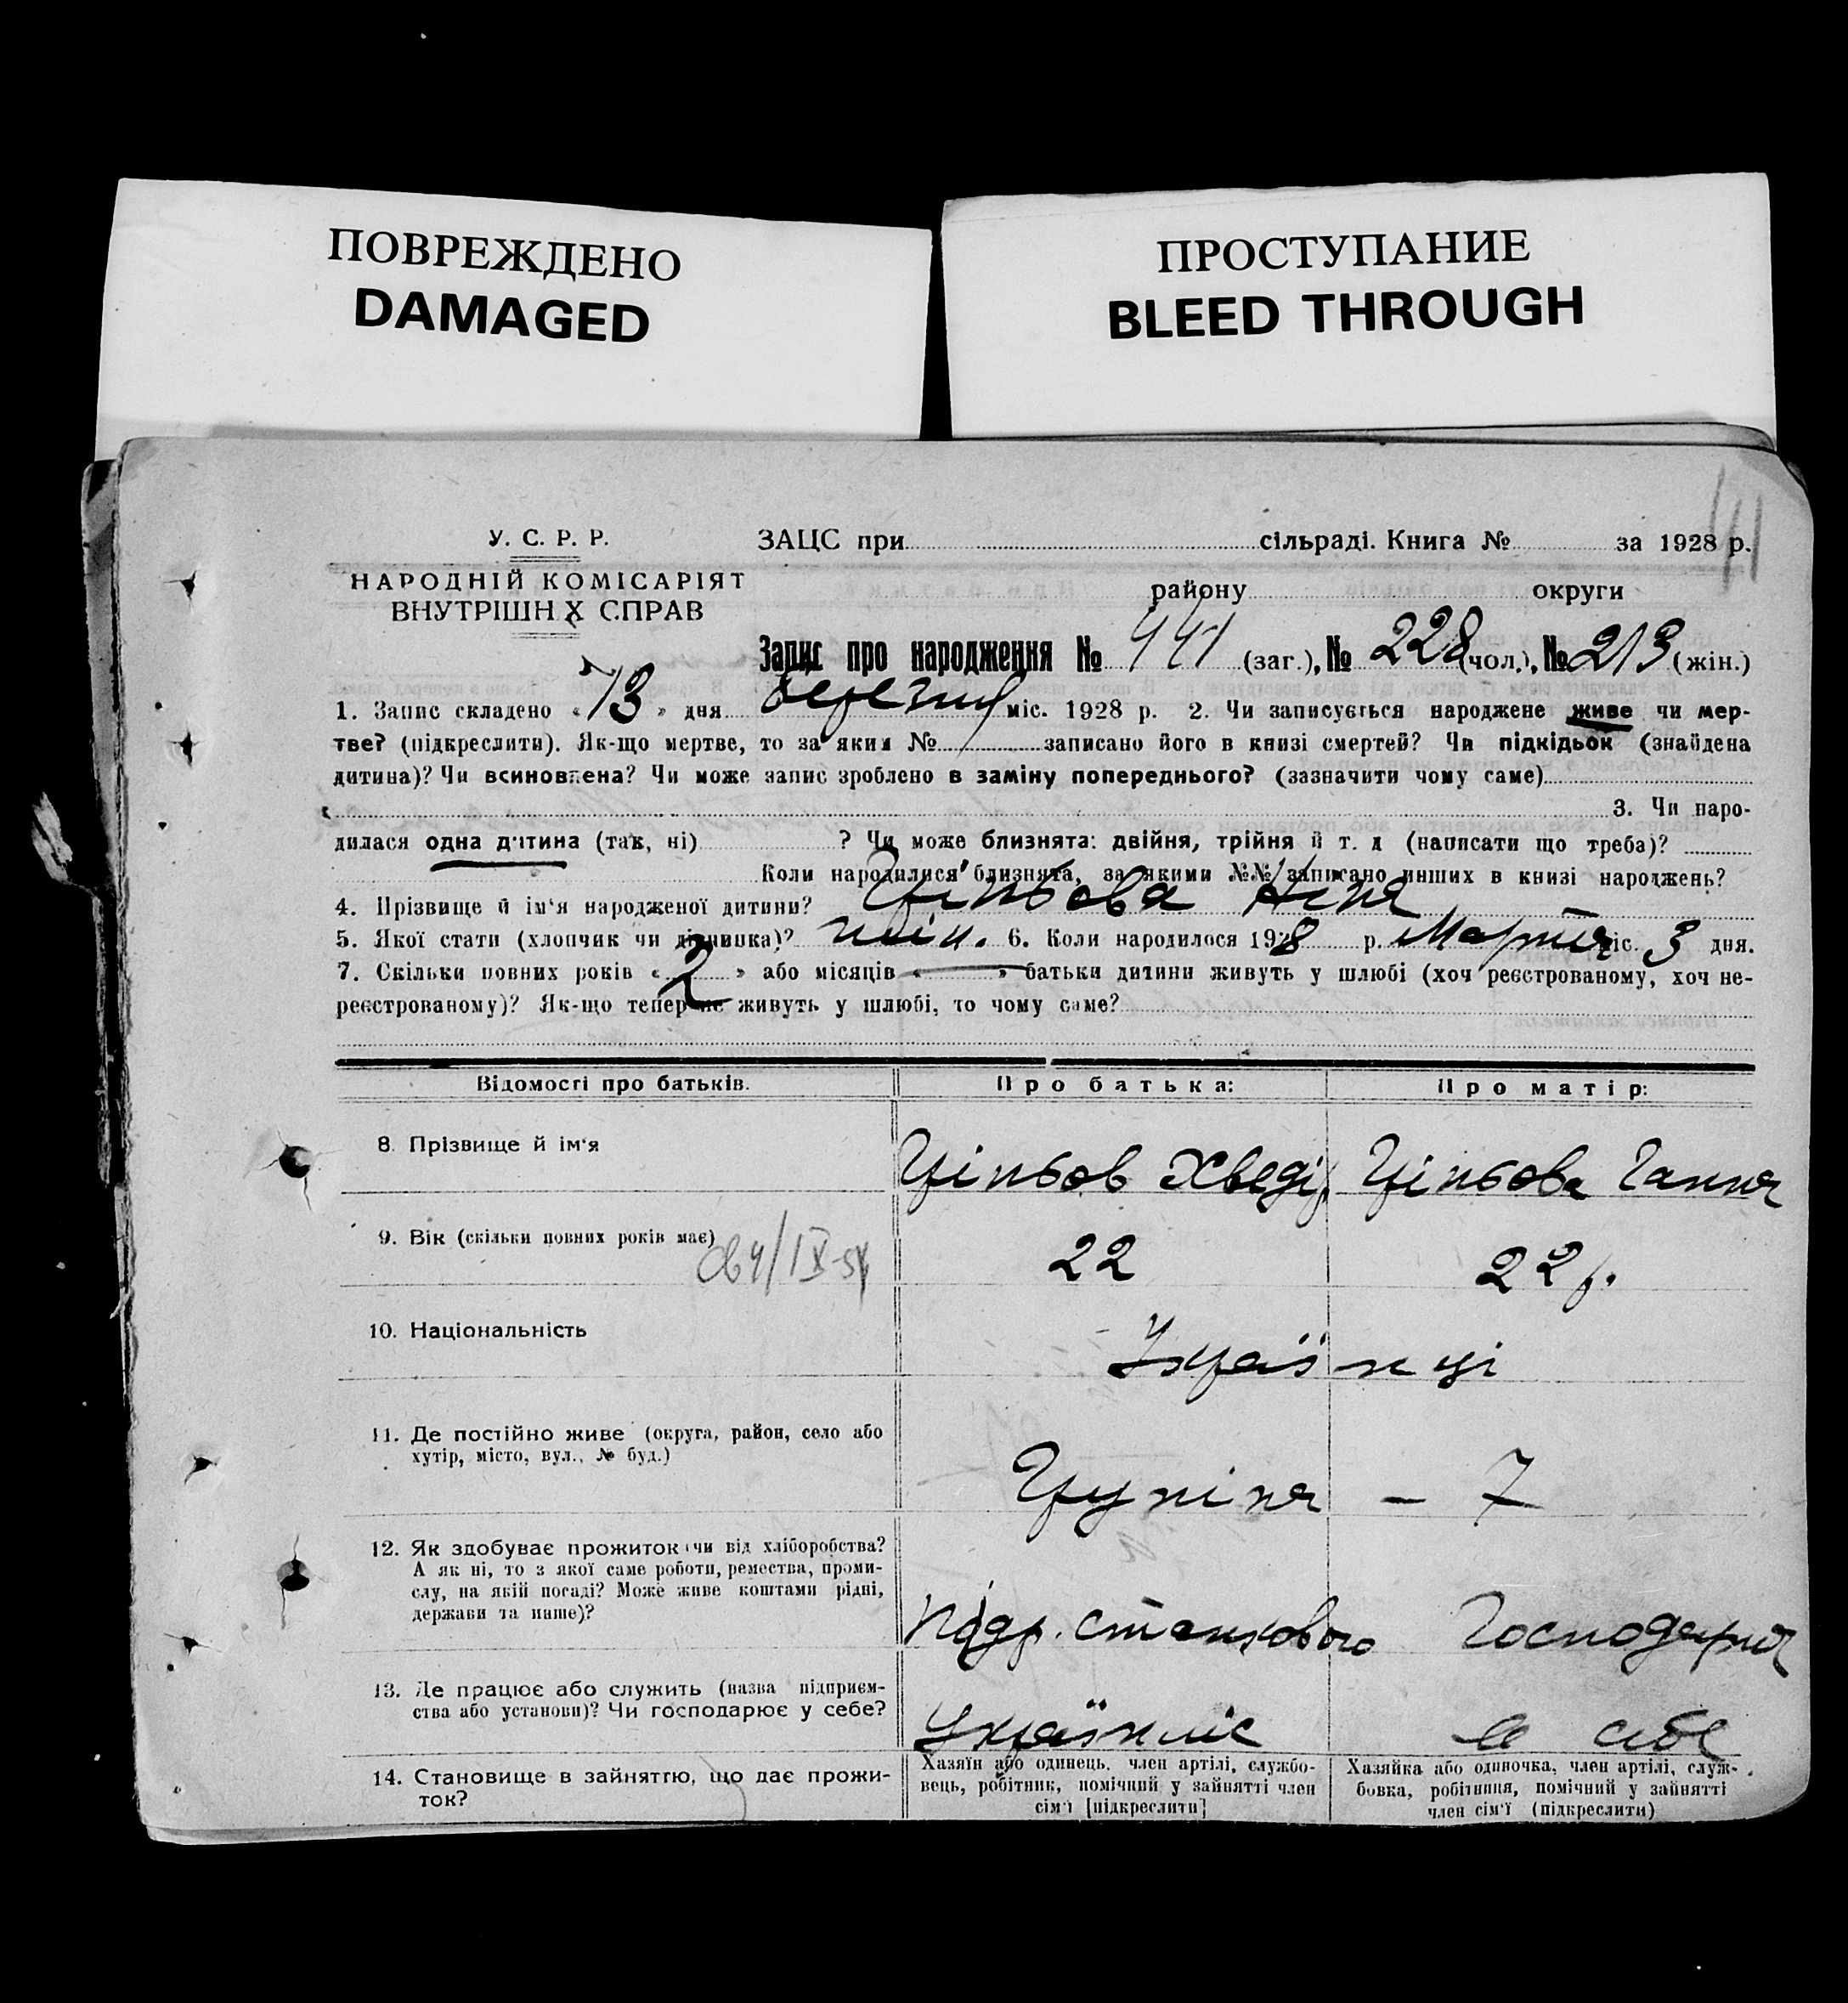 ПОВРЕЖДЕНО
DAMAGED
ПРОСТУПАНИЕ
BLEED THROUGH
У. С. Р. Р.
НАРОДНІЙ КОМІСАРІЯТ
ВНУТРІШН Х СПРАВ
ЗАЦС при сільраді. Книга № за 1928 р.
району округи
Запис про народження № 441 (заг.), № 228 (чол.), № 213 (жін.)
1. Запис складено « 13 » дня березня міс. 1928 р. 2. Чи записується народжене живе чи мер-
тве? (підкреслити). Як-що мертве, то за яким № записано його в книзі смертей? Чи підкідьок (знайдена
дитина)? Чи всиновлена? Чи може запис зроблено в заміну попереднього? (зазначити чому саме)
3. Чи наро-
дилася одна дитина (так, ні) ? Чи може близнята: двійня, трійня й т. д (написати що треба)?
Коли народилися близнята, за якими №№ записано инших в книзі народжень?
4. Прізвище й ім'я народженої дитини? Ціпьова
5. Якої стати (хлопчик чи дівчинка)? 6. Коли народилося 1928 р. Марта міс. 3 дня.
7. Скільки повних років « 2 » або місяців « — » батьки дитини живуть у шлюбі (хоч реєстрованому, хоч не-
реєстрованому)? Як-що тепер не живуть у шлюбі, то чому саме?
Відомості про батьків. Про батька: Про матір:
8. Прізвище й ім'я Ціпьов Хведір Ціпьова Ганна
9. Вік (скільки повних років має) 22 22 р.
10. Національність Українці
11. Де постійно живе (округа, район, село або
хутір, місто, вул., № буд.)
– 7
12. Як здобуває прожиток чи від хліборобства?
А як ні, то з якої саме роботи, ремества, проми-
слу, на якій посаді? Може живе коштами рідні,
держави та инше)?
Господарня
13. Де працює або служить (назва підприєм-
ства або установи)? Чи господарює у себе?
Українліс в себе
14. Становище в зайняттю, що дає прожи-
ток?
Хазяїн або одинець, член артілі, службо-
вець, робітник, помічний у зайнятті член
сім'ї [підкреслити]
Хазяйка або одиночка, член артілі, служ-
бовка, робітниця, помічний у зайнятті
член сім'ї (підкреслити)